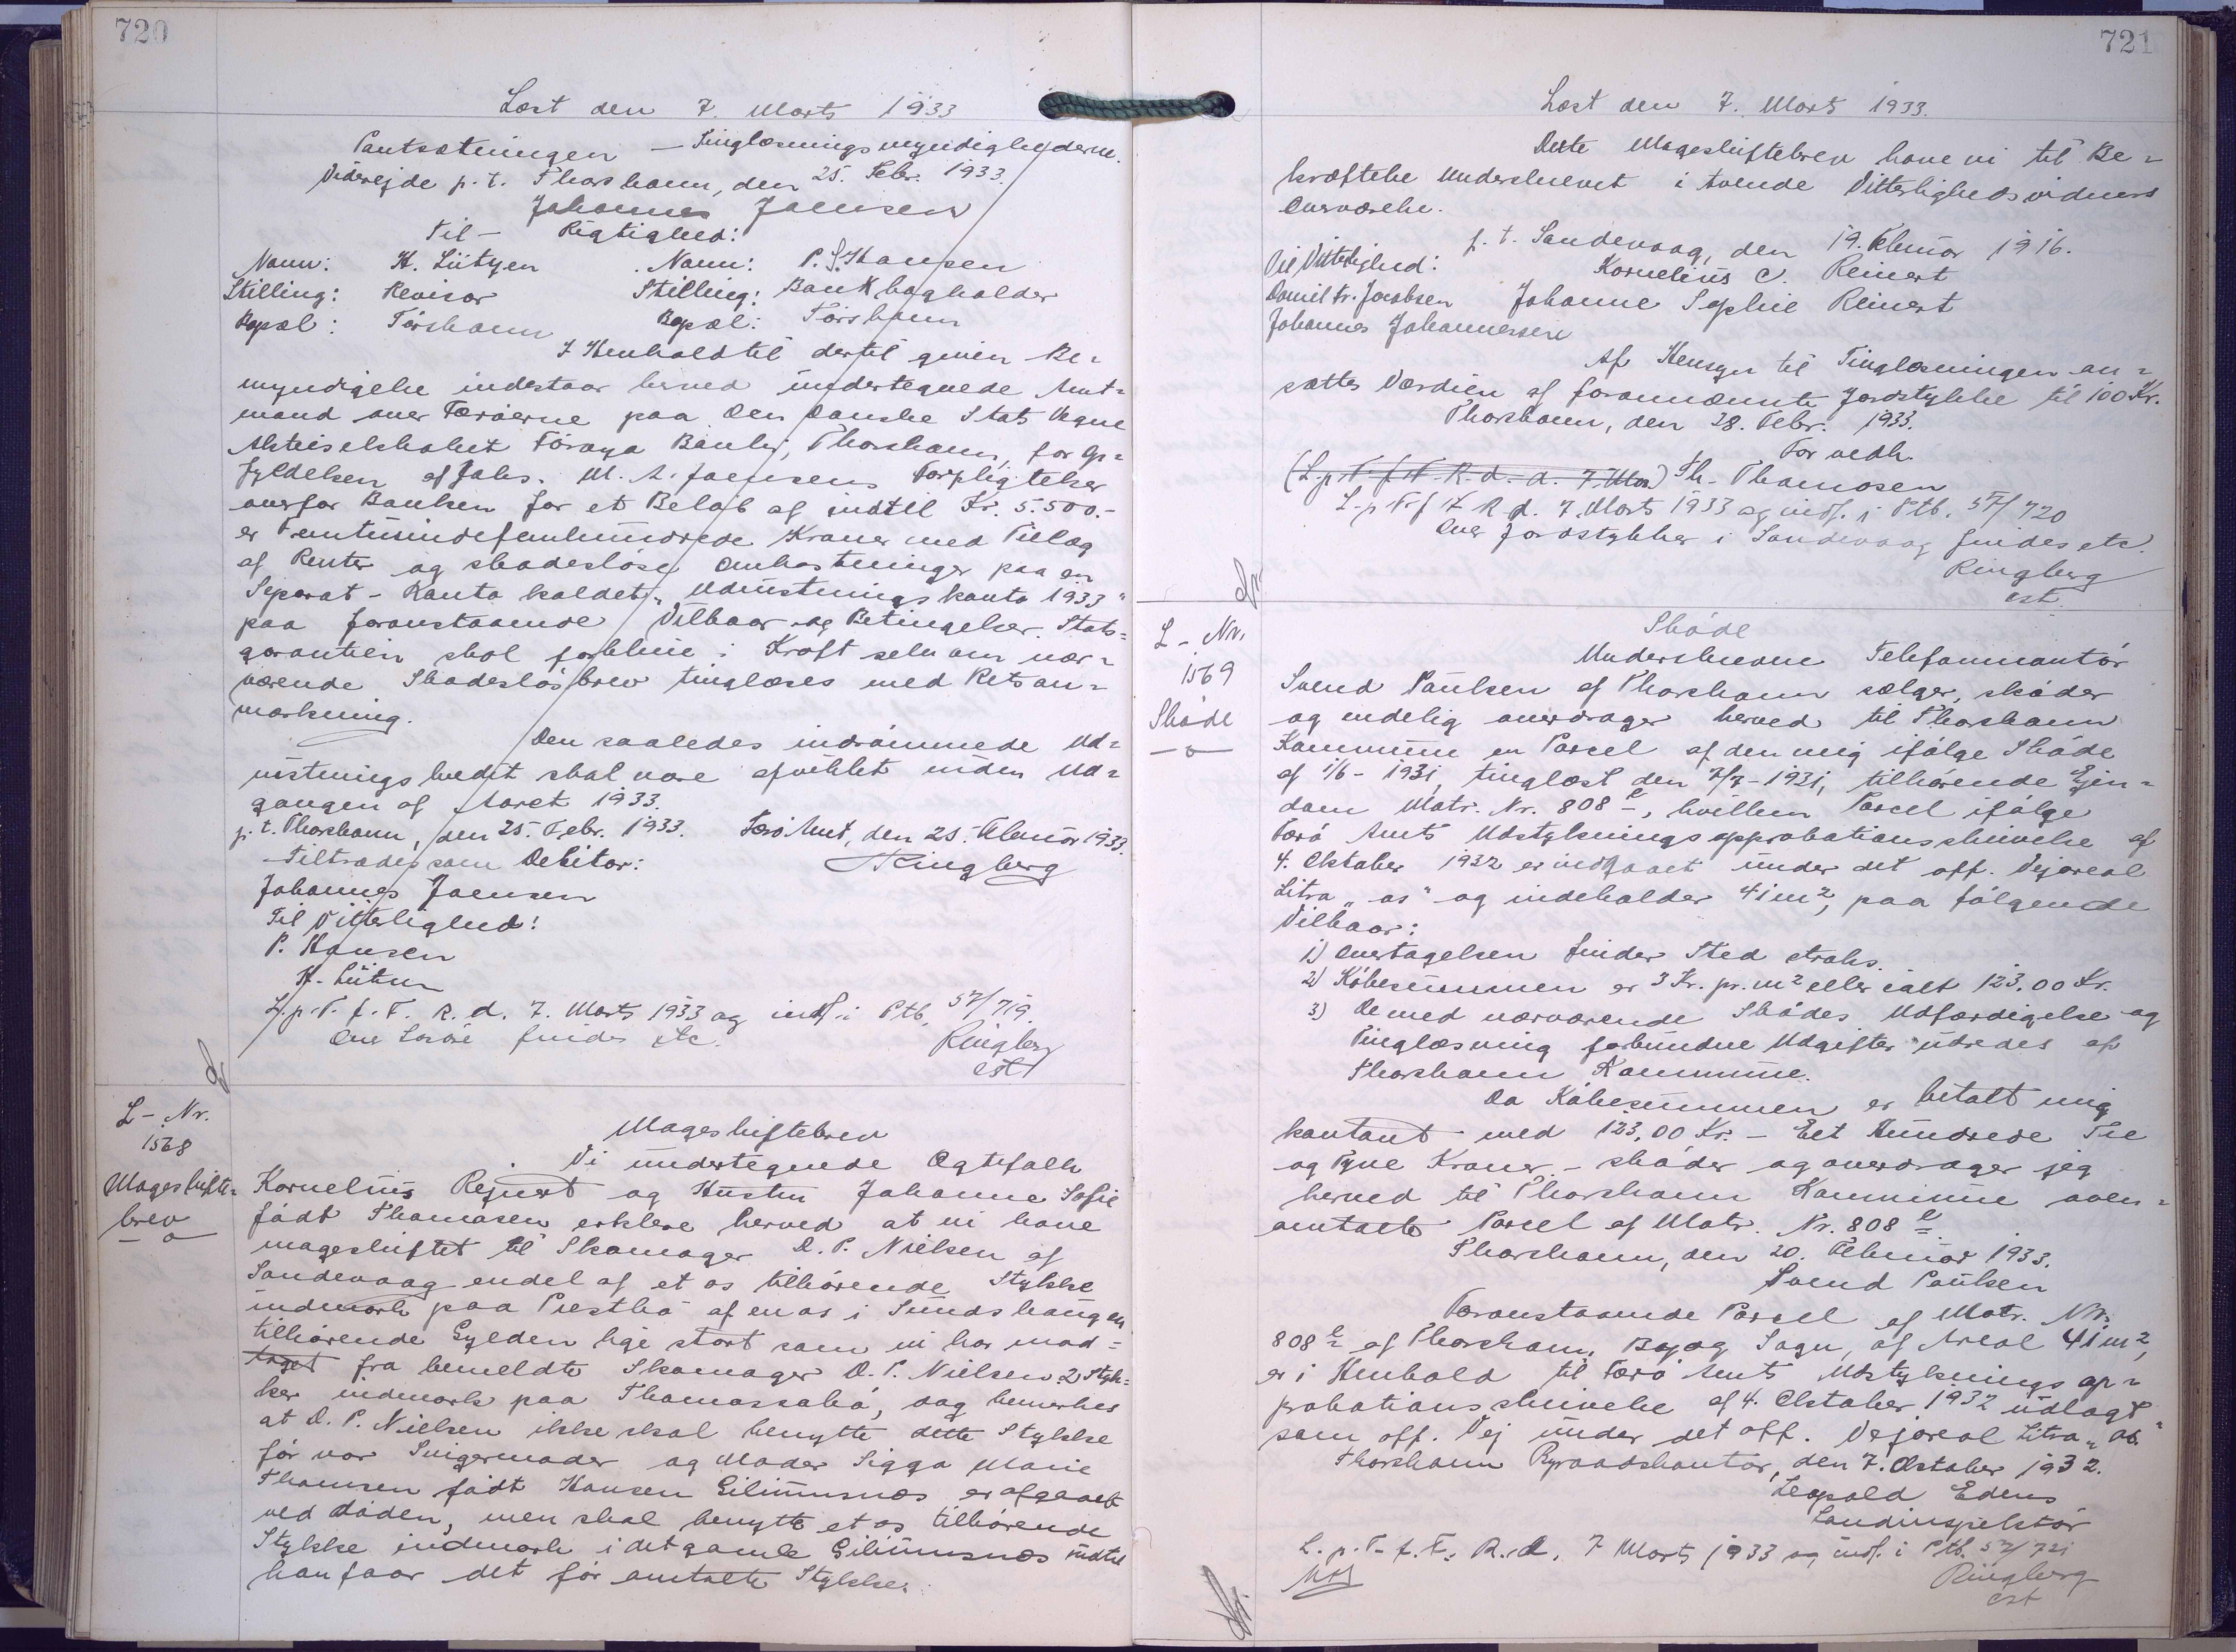 720
Læst den 7. Marts 1933
Pantsætningen – Tinglæsningsmyndighederne.
Viderejde p.t. Thorshavn, den 25. Febr. 1933.
Johannes Joensen
Til – Rigtighed:
Navn: H. Lützen Navn: P. S. Hansen
Stilling: Revisor Stilling: Bankbogholder
Bopæl: Tórshavn Bopæl: Tórshavn
I Henhold til dertil given Be-
myndigelse indestaar herved undertegnede Amt-
mand over Færøerne paa Den danske Stats Vegne
Aktieselskabet Föroya Banki, Thorshavn, for Op-
fyldelsen af Johs. M. A. Joensens Forpligtelser
overfor Banken for et Beløb af indtil Kr. 5.500.-
er Femtusindefemhundrede Kroner med Tillæg
af Renter og skadesløse Omkostninger paa en
Separat-Konto kaldet „Udrustningskonto 1933"
paa foranstaaende Vilkaar og Betingelser. Stats-
garantien skal forblive i Kraft selv om nær-
værende Skadesløsbrev tinglæses med Retsan-
mærkning.
Den saaledes indrømmede Ud-
rustningskredit skal være afviklet inden Ud-
gangen af Aaret 1933.
p.t. Thorshavn, den 25. Febr. 1933. Færø Amt, den 25. Februar 1933.
Tiltrædes som Debitor: Ringberg
Johannes Joensen
Til Vitterlighed:
P. Hansen
H. Lützen
L. p. T. f. F. R. d. 7. Marts 1933 og indf. i Ptb. 57/719.
Over Løsøre findes etc. Ringberg
cst
L-Nr.
1568
Mageskifte-
brev
Mageskiftebrev
Vi undertegnede Ægtefolk
Kornelius Rejnert og Hustru Johanne Sofie
født Thomasen erklere herved at vi have
mageskiftet til Skomager D. P. Nielsen af
Sandevaag endel af et os tilhørende Stykke
indmark paa Presthø af en os i Sundshaugen
tilhørende Gylden lige stort som vi har mod-
taget fra bemeldte Skomager D. P. Nielsen 2 Styk-
ker indmark paa Thomassabø, dog bemerkes
at D. P. Nielsen ikke skal benytte dette Stykke
før vor Svigermoder og Moder Sigga Marie
Thomsen født Hansen Gilimusnæs er afgaaet
ved Døden, men skal benytte et os tilhørende
Stykke indmark i det gamle Gilimusnæs indtil
han faar det før omtalte Stykke.
721
Læst den 7. Marts 1933.
Dette Mageskiftebrev have vi til Be-
kræftelse underskrevet i tvende Vitterlighedsvidners
Overværelse.
p. t. Sandevaag, den 19. Februar 1916.
Til Vitterlighed: Kornelius C. Reinert
Daniel Fr. Jacobsen Johanne Sophie Reinert
Johannes Johannessen
Af Hensyn til Tinglæsningen an-
sættes Værdien af forannævnte Jordstykke til 100 Kr.
Thorshavn, den 28. Febr. 1933.
For vedk.
(L. p. T. f. F. R. d. d. 7. Mar) Th. Thomasen
L. p. T. f. F. R. d. 7. Marts 1933 og indf. i Ptb. 57/720
Over Jordstykker i Sandevaag findes etc.
Ringberg
cst.
L-Nr.
1569
Skøde
Skøde
Underskrevne Telefonmontør
Svend Paulsen af Thorshavn sælger, skøder
og endelig overdrager herved til Thorshavn
Kommune en Parcel af den mig ifølge Skøde
af 1/6-1931, tinglæst den 7/7-1931, tilhørende Ejen-
dom Matr. Nr. 808 e, hvilken Parcel ifølge
Færø Amts Udstykningsapprobationsskrivelse af
4. Oktober 1932 er indgaaet under det off. Vejareal
Litra „as" og indeholder 41 m², paa følgende
Vilkaar:
1) Overtagelsen finder Sted straks.
2) Købesummen er 3 Kr. pr. m² eller ialt 123,00 Kr.
3) De med nærværende Skødes Udfærdigelse og
Tinglæsning forbundne Udgifter udredes af
Thorshavn Kommune.
Da Købesummen er betalt mig
kontant med 123,00 Kr. – Eet Hundrede Tre
og Tyve Kroner – skøder og overdrager jeg
herved til Thorshavn Kommune oven-
omtalte Parcel af Matr. Nr. 808 e.
Thorshavn, den 20. Februar 1933.
Svend Paulsen
Foranstaaende Parcel af Matr. Nr.
808 e af Thorshavn, By og Sogn, af Areal 41 m²,
er i Henhold til Færø Amts Udstyknings ap-
probationsskrivelse af 4. Oktober 1932 udlagt
som off. Vej under det off. Vejareal Litra „as"
Thorshavn Byraadskontor, den 7. Oktober 1932.
Leopold Edens
Landinspektør
L. p. T. f. F. R. d. 7 Marts 1933 og indf. i Ptb. 57/721
Ringberg
cst